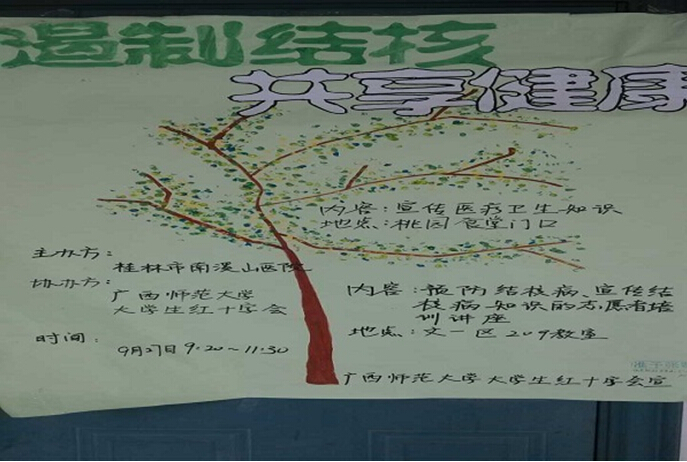 遏制结核
共享健康
内容：宣传医疗卫生知识
地点：桃园食堂门口
主办方：
桂林市南溪山医院
协办方：
广西师范大学
大学生红十字会
时间：
9月27日 9:20~11:30
内容：预防结核病、宣传结
核病知识的志愿者培
训讲座
地点：文一区209教室
广西师范大学大学生红十字会宣